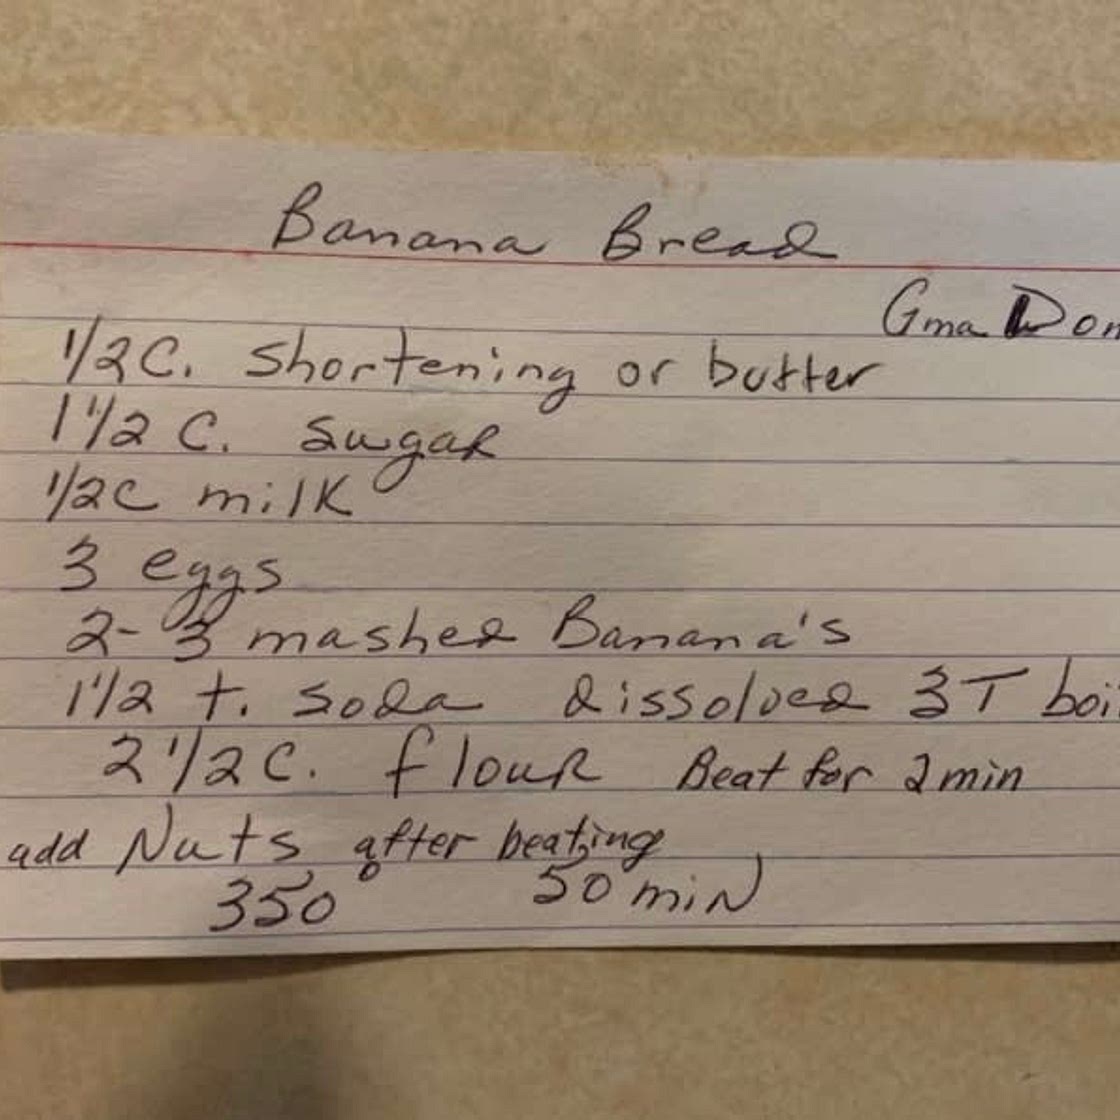 Banana Bread
Gma Don
1/2 C. Shortening or butter
1 1/2 C. Sugar
1/2 C milk
3 eggs
2-3 mashed Banana's
1 1/2 t. Soda dissolved 3T boi
2 1/2 C. flour Beat for 2 min
add Nuts after beating
350° 50 min